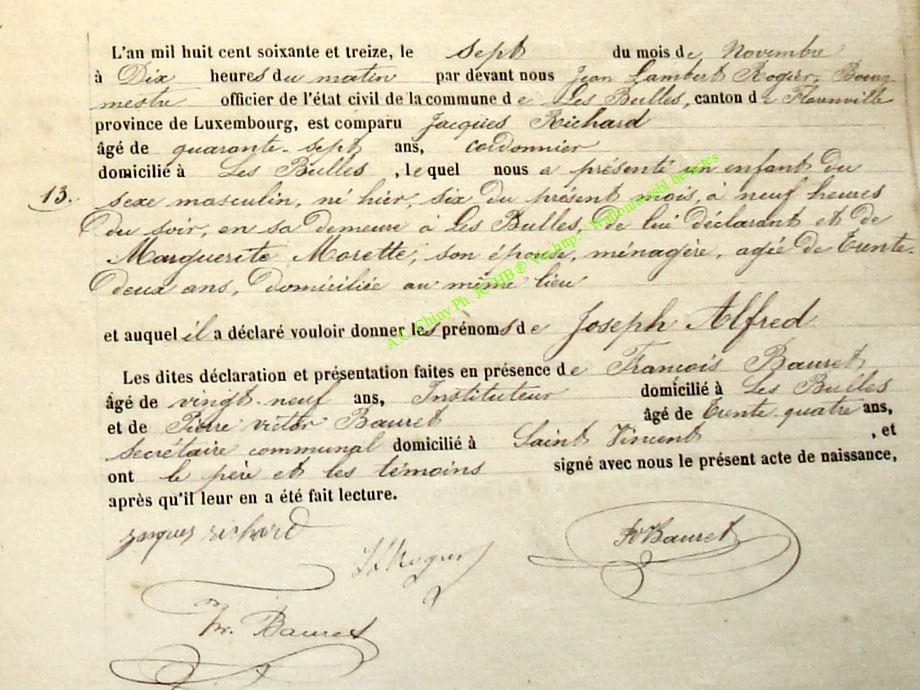 L'an mil huit cent soixante et treize, le sept du mois de Novembre
à Dix heures du matin par devant nous Jean Lambert Rogier, Bourg-
mestre officier de l'état civil de la commune de Les Bulles, canton de Florenville
province de Luxembourg, est comparu Jacques Richard
âgé de quarante-sept ans, cordonnier
domicilié à Les Bulles, lequel nous a présenté un enfant du
13. sexe masculin, né hier, six du présent mois, à neuf heures
du soir, en sa demeure à Les Bulles, de lui déclarant et de
Marguerite Morette, son épouse, ménagère, agée de Trente-
deux ans, domiciliée au même lieu
et auquel il a déclaré vouloir donner les prénoms de Joseph Alfred
Les dites déclaration et présentation faites en présence de François Bauret,
âgé de vingt-neuf ans, Instituteur domicilié à Les Bulles
et de Pierre victor Bauret âgé de Trente-quatre ans,
secrétaire communal domicilié à Saint Vincent, et
ont le père et les témoins signé avec nous le présent acte de naissance,
après qu'il leur en a été fait lecture.
jacques richard
JLRogier
Bauret
fr. Bauret